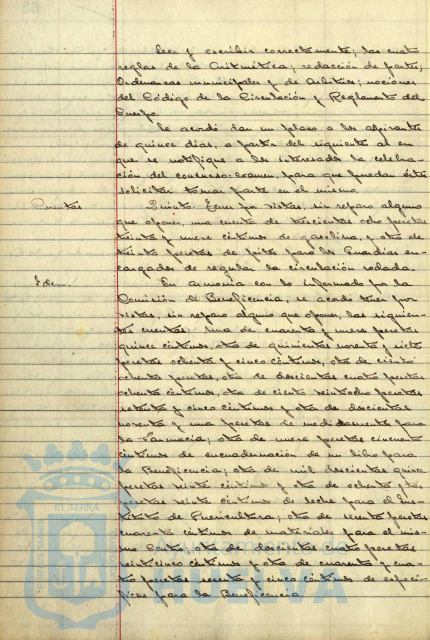 Leer y escribir correctamente; las cuatro
reglas de la Aritmética; redacción de partes;
Ordenanzas municipales y de Arbitrios; nociones
del Código de la Circulación y Reglamento del
Cuerpo.
Se acordó dar un plazo a los aspirantes
de quince días, a partir del siguiente al en
que se notifique a los interesados la celebra-
ción del concurso-examen, para que puedan éstos
solicitar tomar parte en el mismo.
Cuentas
Quinto. Tener por vistas, sin reparo alguno
que oponer, una cuenta de trescientas ocho pesetas
treinta y nueve céntimos de gasolina, y otra de
treinta pesetas de pitos para los Guardias en-
cargados de regular la circulación rodada.
Idem.
En armonía con lo informado por la
Comisión de Beneficencia, se acordó tener por
vistas, sin reparo alguno que oponer, las siguien-
tes cuentas: Una de cuarenta y nueve pesetas
quince céntimos, otra de quinientas noventa y siete
pesetas ochenta y cinco céntimos, otra de ciento
ochenta pesetas, otra de doscientas cuatro pesetas
ochenta céntimos, otra de ciento veintiocho pesetas
setenta y cinco céntimos y otra de doscientas
noventa y una pesetas de medicamentos para
la Farmacia; otra de nueve pesetas cincuenta
céntimos de encuadernación de un libro para
la Beneficencia; otra de mil doscientas quince
pesetas veinte céntimos y otra de ochenta y tres
pesetas veinte céntimos de leche para el Ins-
tituto de Puericultura; otra de pesetas
cuarenta céntimos de materiales para el mis-
mo Centro, otra de doscientas cuatro pesetas
veinticinco céntimos y otra de cuarenta y cua-
tro pesetas sesenta y cinco céntimos de especí-
ficos para la Beneficencia
HUELVA